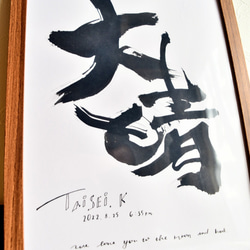 大晴
TAISEI. K
2022. 8. 25 6:35am
love you to the moon and back